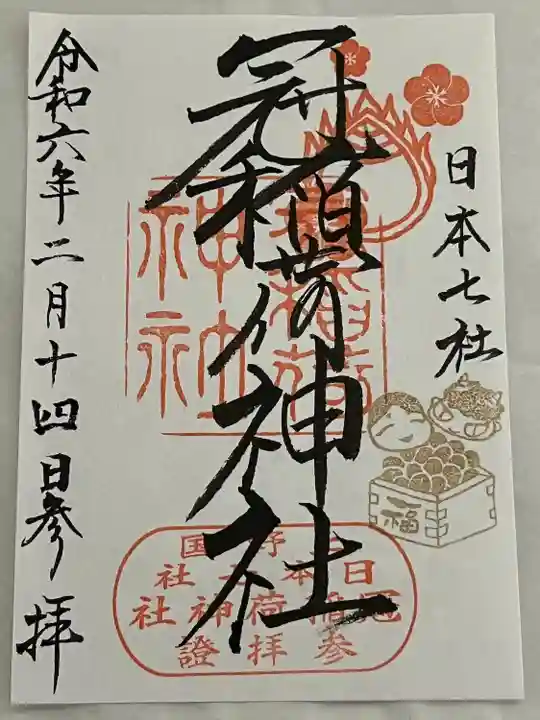 日本七社
冠稲荷神社
令和六年二月十四日参拝
福
日本七社
冠稲荷神社
参拝證